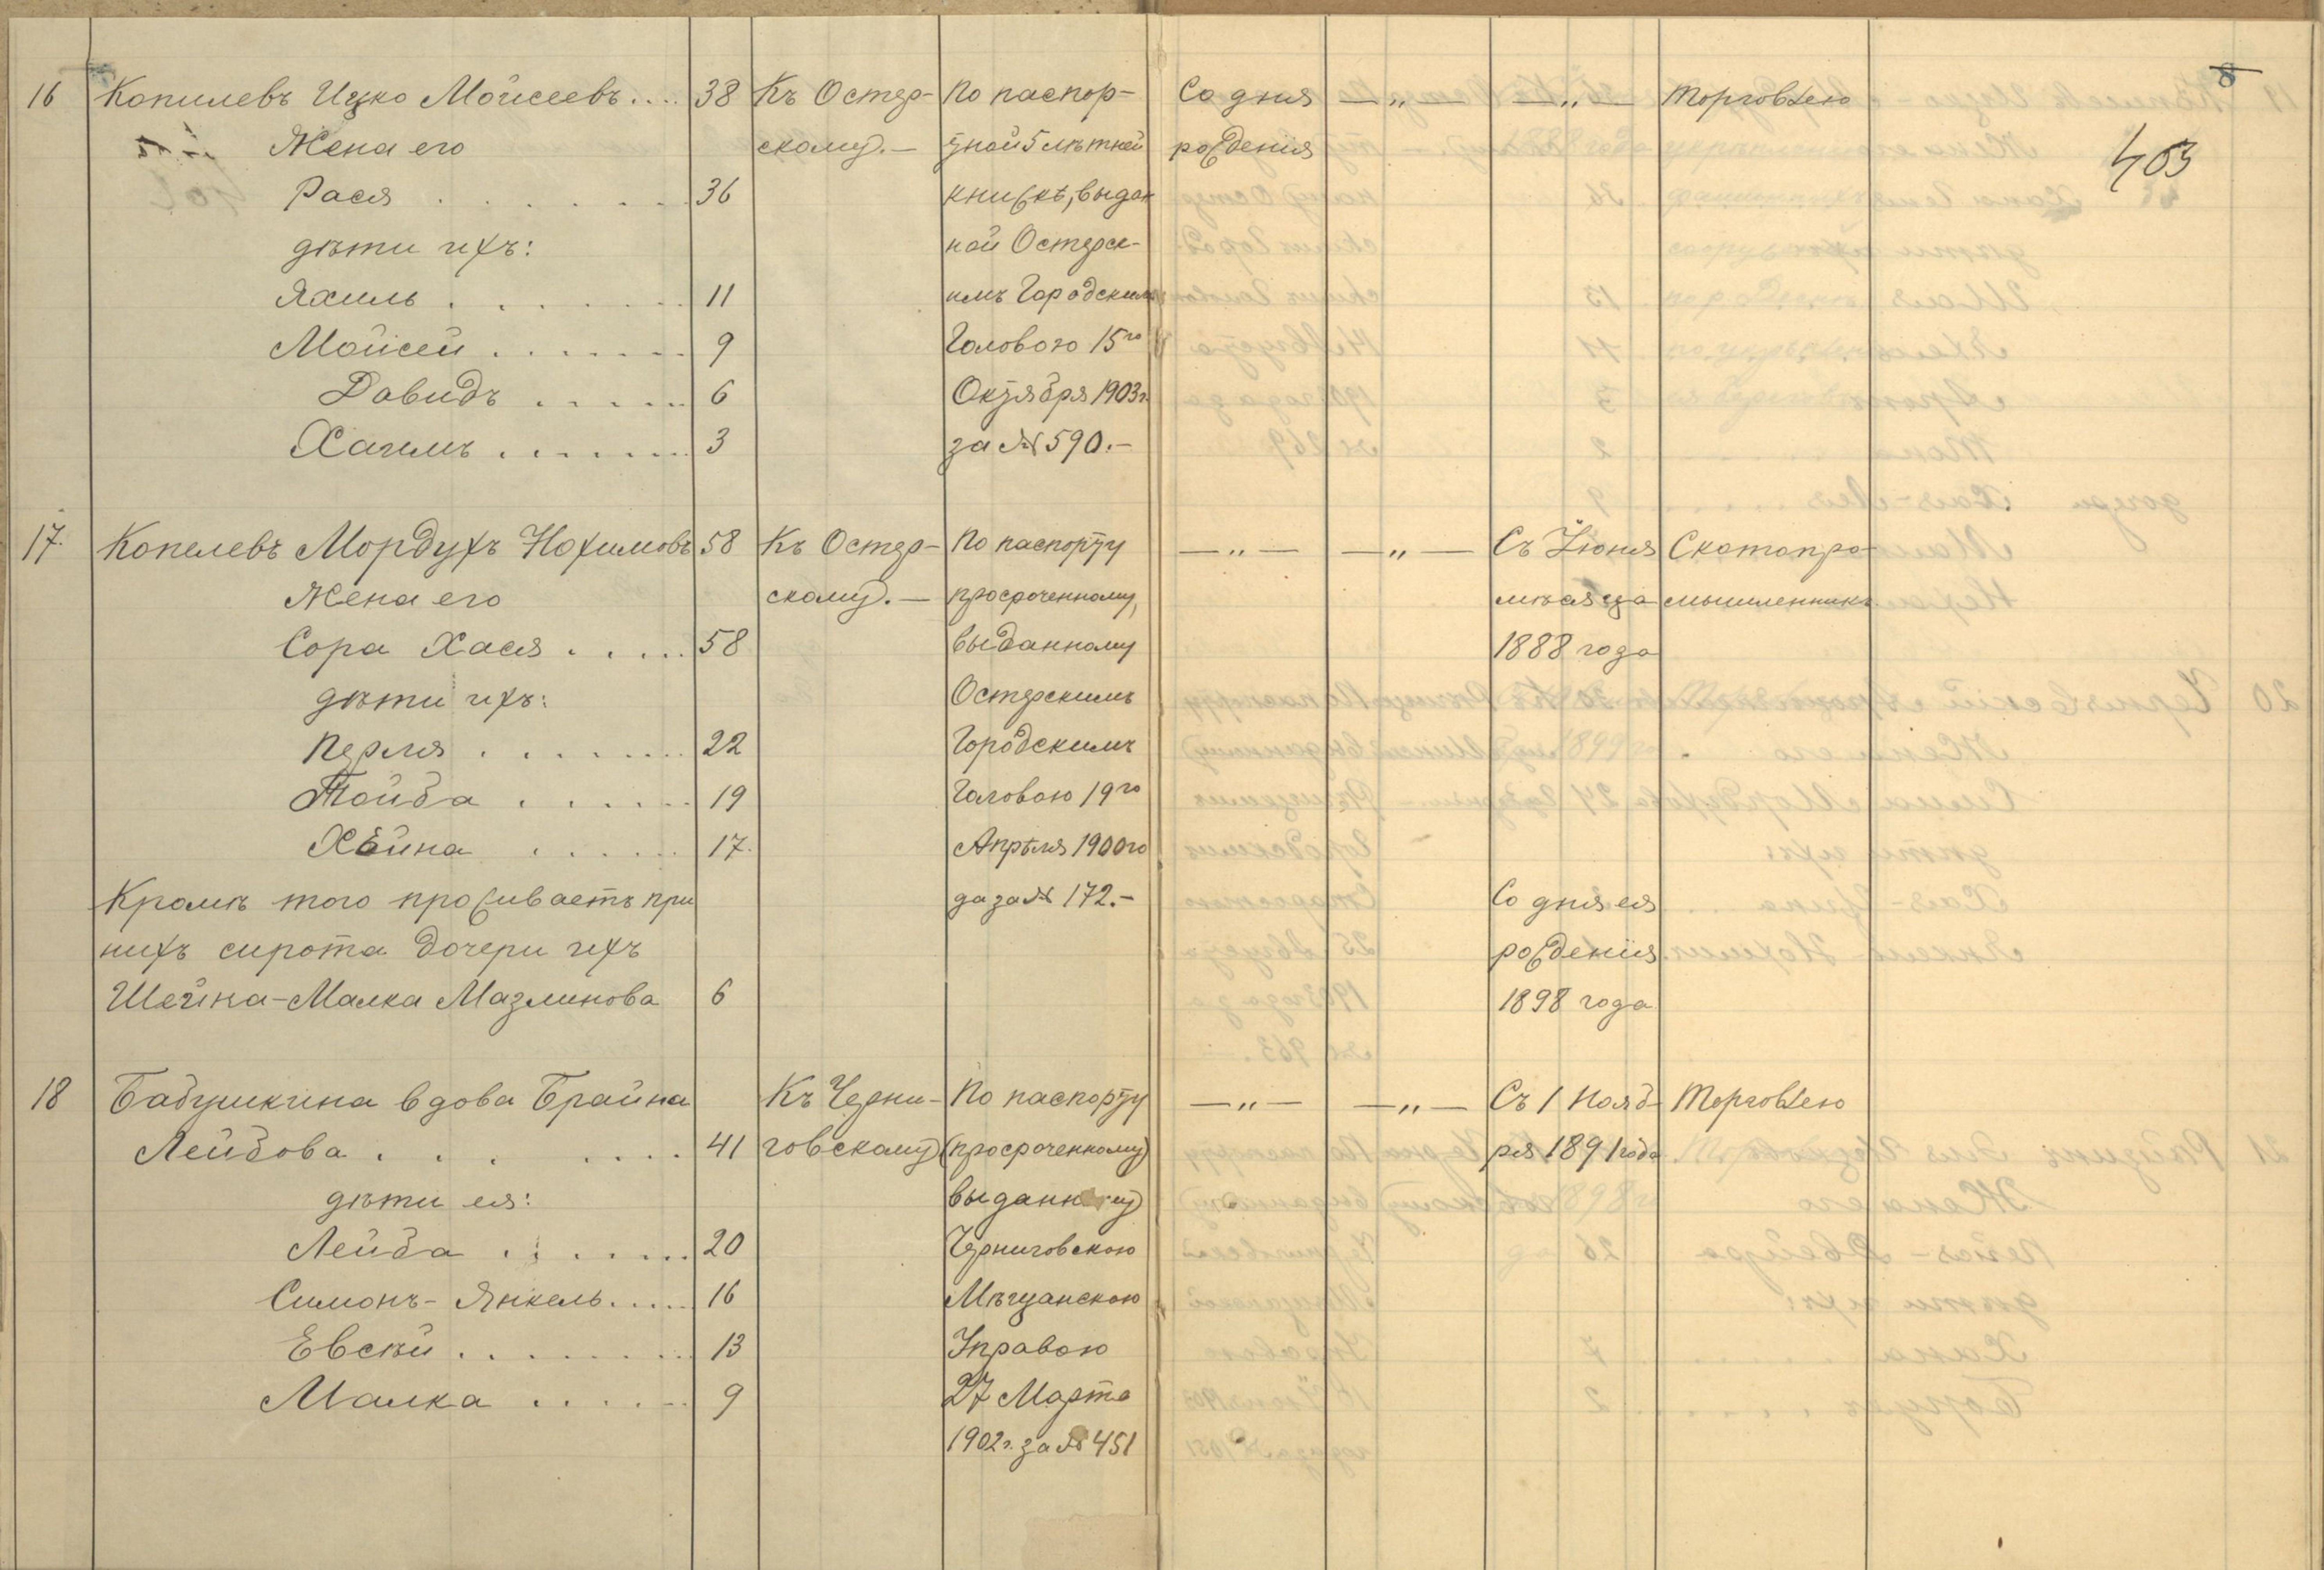 8
403
16 Копилевъ Ицко Мойсеевъ.... 38 Къ Остер- По паспор- Со дня —„— —„— Торговлею
Жена его скому.— тной 5 лѣтней рожденія
Рася . . . . . . 36 книжкѣ, выдан
дѣти ихъ: ной Остерск-
Яхиль . . . . . . 11 имъ Городскимъ
Мойсей . . . . . . 9 Головою 15го
Давидъ . . . . . 6 Октября 1903 г.
Хаимъ . . . . . . 3 за № 590.—
17. Копелевъ Мордухъ Нохимовъ 58 Къ Остер- По паспорту —„— —„— Съ Іюня Скотопро-
Жена его скому.— просроченному, мѣсяца мышленникъ
Сора Хася . . . . . 58 выданному 1888 года
дѣти ихъ: Остерскимъ
Перля . . . . . . 22 Городскимъ
Тойба . . . . . . 19 Головою 19го
Хейна . . . . . . 17. Апрѣля 1900 го
Кромѣ того проживаетъ при да за № 172.— Со дня ея
нихъ сирота дочери ихъ рожденія
Шейна-Малка Мазлинова 6 1898 года
18 Бабушкина вдова Брайна Къ Черни- По паспорту —„— —„— Съ 1 Нояб- Торговлею
Лейбова . . . . . . . 41 говскому (просроченному) ря 1891 года
дѣти ея: выданному
Лейба . . . . . . 20 Черниговскою
Симонъ-Янкель..... 16 Мѣщанскою
Евсѣй . . . . . . . 13 Управою
Малка . . . . . 9 27 Марта
1902 г. за № 451